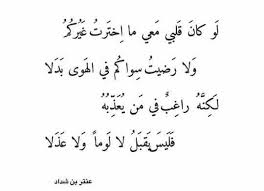 لَو كانَ قَلبي مَعي ما اِختَرتُ غَيرَكُمُ
وَلا رَضيتُ سِواكُم في الهَوى بَدَلا
لَكِنَّهُ راغِبٌ في مَن يُعَذِّبُهُ
فَلَيسَ يَقبَلُ لا لَوماً وَلا عَذَلا
عنتر بن شداد